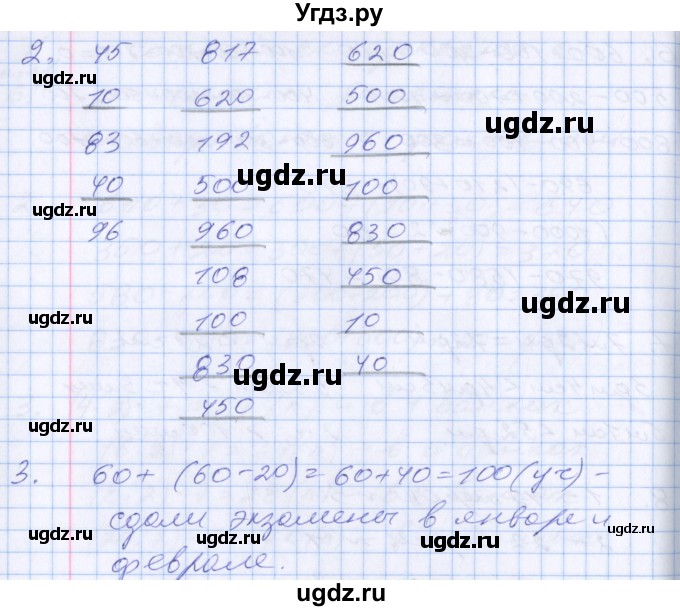 Угдз.ру
2. 45 817 620
10 620 500
83 192 960
40 500 100
96 960 830
108 450
100 10
830 40
450
3. 60+ (60-20)=60+40=100(уч)-
сдали экзамены в январе и
феврале.
ugdz.ru
ugdz.ru
ugdz.ru
ugdz.ru
ugdz.ru
ugdz.ru
ugdz.ru
ugdz.ru
ugdz.ru
ugdz.ru
ugdz.ru
ugdz.ru
ugdz.ru